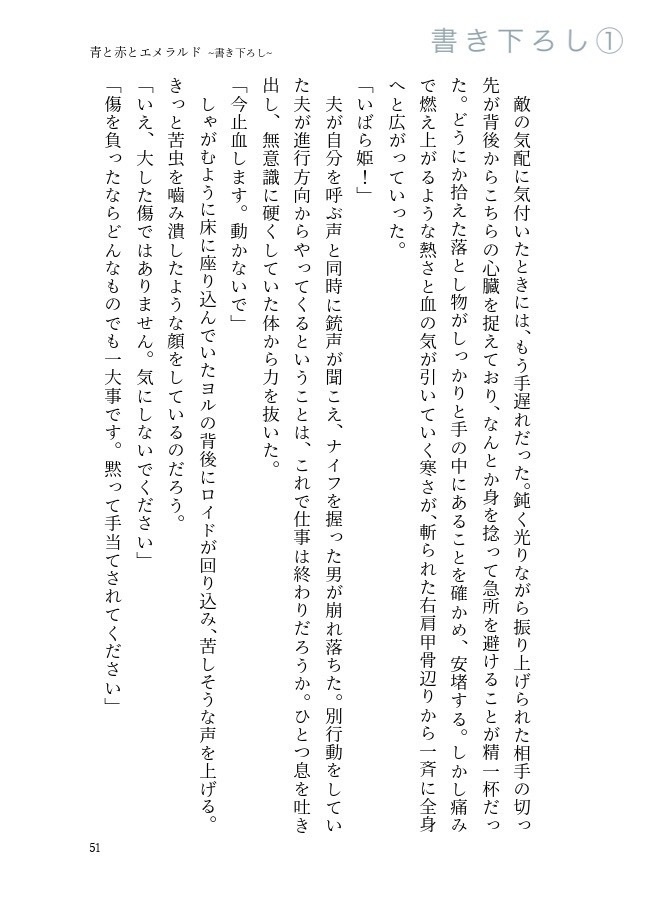 書き下ろし①
青と赤とエメラルド ~書き下ろし~
敵の気配に気付いたときには、もう手遅れだった。鈍く光りながら振り上げられた相手の切っ
先が背後からこちらの心臓を捉えており、なんとか身を捻って急所を避けることが精一杯だっ
た。どうにか拾えた落とし物がしっかりと手の中にあることを確かめ、安堵する。しかし痛み
で燃え上がるような熱さと血の気が引いていく寒さが、斬られた右肩甲骨辺りから一斉に全身
へと広がっていった。
「いばら姫！」
夫が自分を呼ぶ声と同時に銃声が聞こえ、ナイフを握った男が崩れ落ちた。別行動をしてい
た夫が進行方向からやってくるということは、これで仕事は終わりだろうか。ひとつ息を吐き
出し、無意識に硬くしていた体から力を抜いた。
「今止血します。動かないで」
しゃがむように床に座り込んでいたヨルの背後にロイドが回り込み、苦しそうな声を上げる。
きっと苦虫を嚙み潰したような顔をしているのだろう。
「いえ、大した傷ではありません。気にしないでください」
「傷を負ったならどんなものでも一大事です。黙って手当てされてください」
51